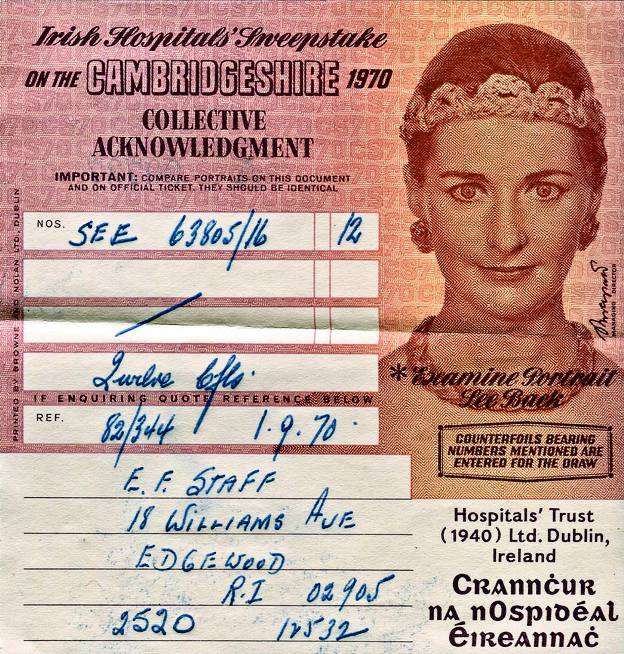 Irish Hospitals' Sweepstake
ON THE CAMBRIDGESHIRE 1970
COLLECTIVE
ACKNOWLEDGMENT
IMPORTANT: COMPARE PORTRAITS ON THIS DOCUMENT
AND ON OFFICIAL TICKET. THEY SHOULD BE IDENTICAL
NOS. SEE 63805/16 12
Twelve Cfls
IF ENQUIRING QUOTE REFERENCE BELOW
REF. 82/344 1.9.70.
E.F. STAFF
18 WILLIAMS AVE
EDGEWOOD
R.I 02905
2520 12532
PRINTED BY BROWNE AND NOLAN LTD., DUBLIN
MANAGING DIRECTOR
*Examine Portrait
See Back
COUNTERFOILS BEARING
NUMBERS MENTIONED ARE
ENTERED FOR THE DRAW
Hospitals' Trust
(1940) Ltd. Dublin,
Ireland
Crannċur
na nOspidéal
Éireannaċ